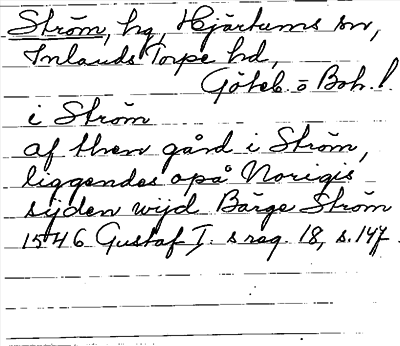 Ström, hg, Hjärtums sn,
Inlands Torpe hd,
Göteb. o Boh. l
i Ström
af then gård i Ström,
liggendes opå Norigis
sijden wijd Bärge Ström
1546 Gustaf I. s reg. 18, s. 147.